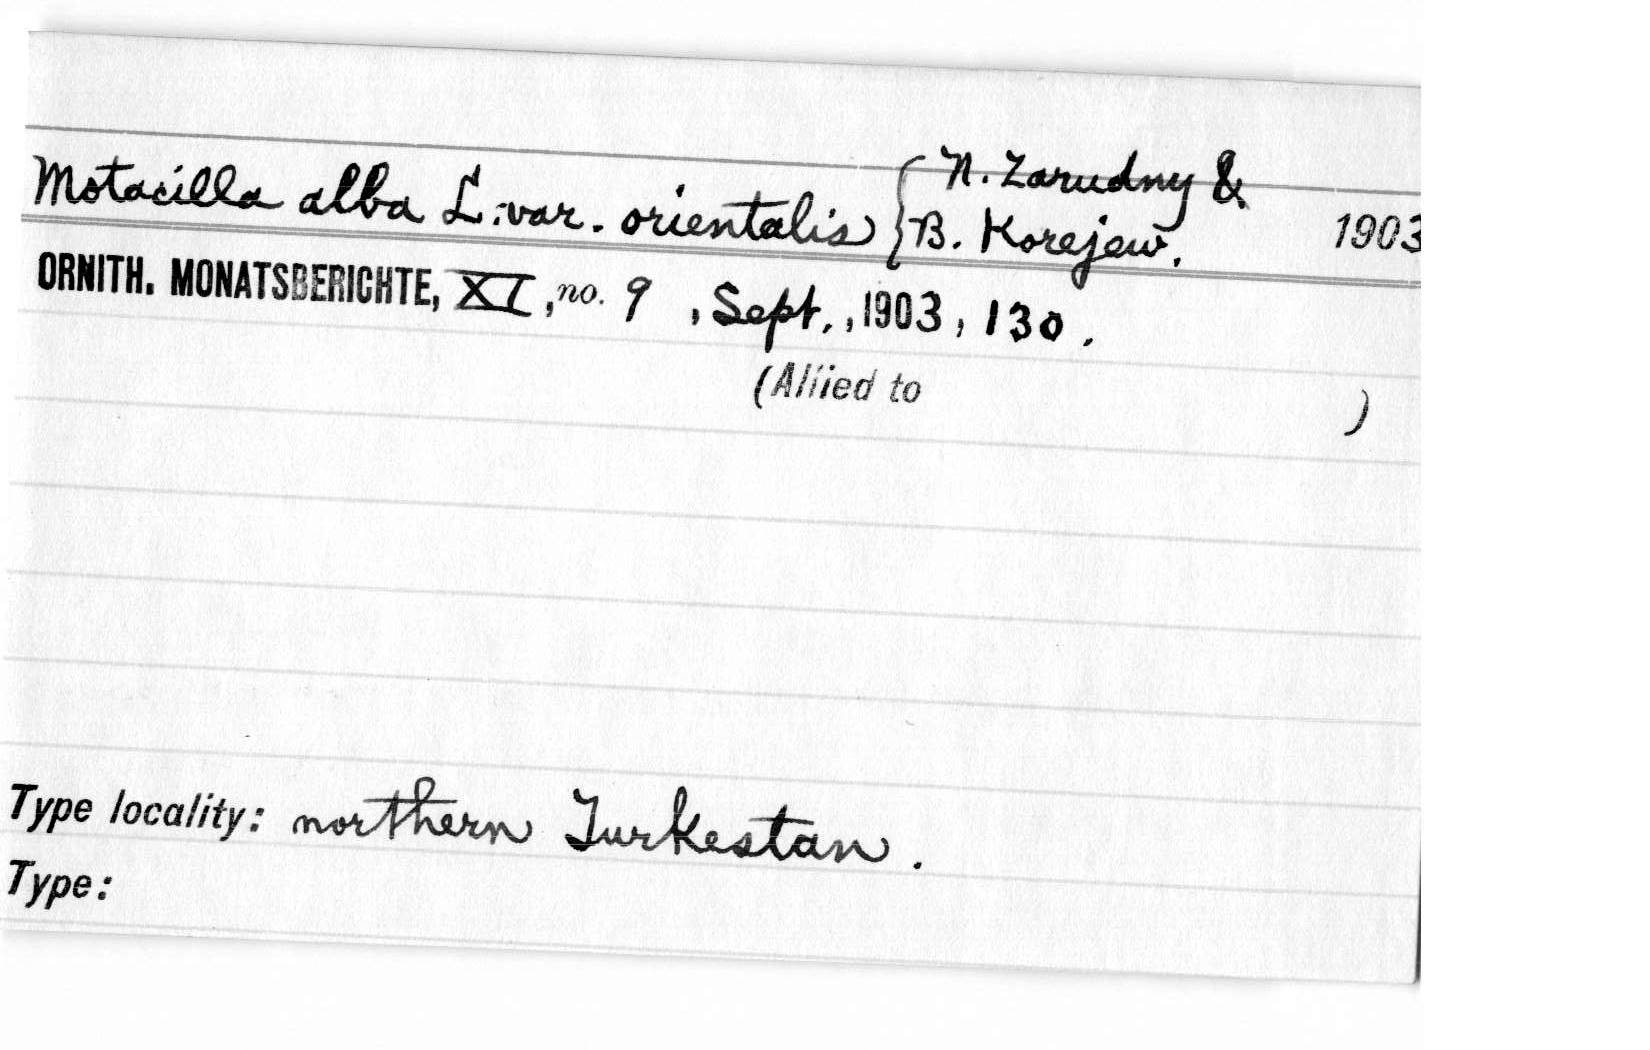 Motacilla alba L. var. orientalis { N. Zarudny & B. Korejew. 1903
ORNITH. MONATSBERICHTE, XI, no. 9, Sept., 1903, 130.
(Allied to )
Type locality: northern Turkestan.
Type: